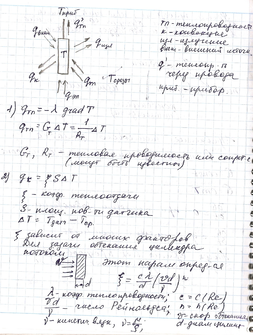 Tприб
qтп
qвын
qизл
T
qк
qтп = Tсреды
qтп
тп - теплопроводность
к - конвекция
изл - излучение
вын - внешний источн.
q' - теплопр.
через провода
приб - прибор.
1) qтп = -λ grad T
qтп = Gт ΔT = 1/Rт ΔT
Gт, Rт - тепловая проводимость или сопрот
(могут быть известны)
2) qк = ξ S ΔT
ξ - коэф. теплоотдачи
S - площ. пов-ти датчика
ΔT = Tдат - Tср.
ξ зависит от многих факторов
Для задачи обтекания цилиндра
потоком
Этот парам. опред-ся
ξ = cλ/d (vd/γ)ⁿ
λ - коэф. теплопроводности;
vd/γ - число Рейнольдса;
c = c(Re)
n = n(Re)
v - скор. обтекания
d - диам. цилинд.